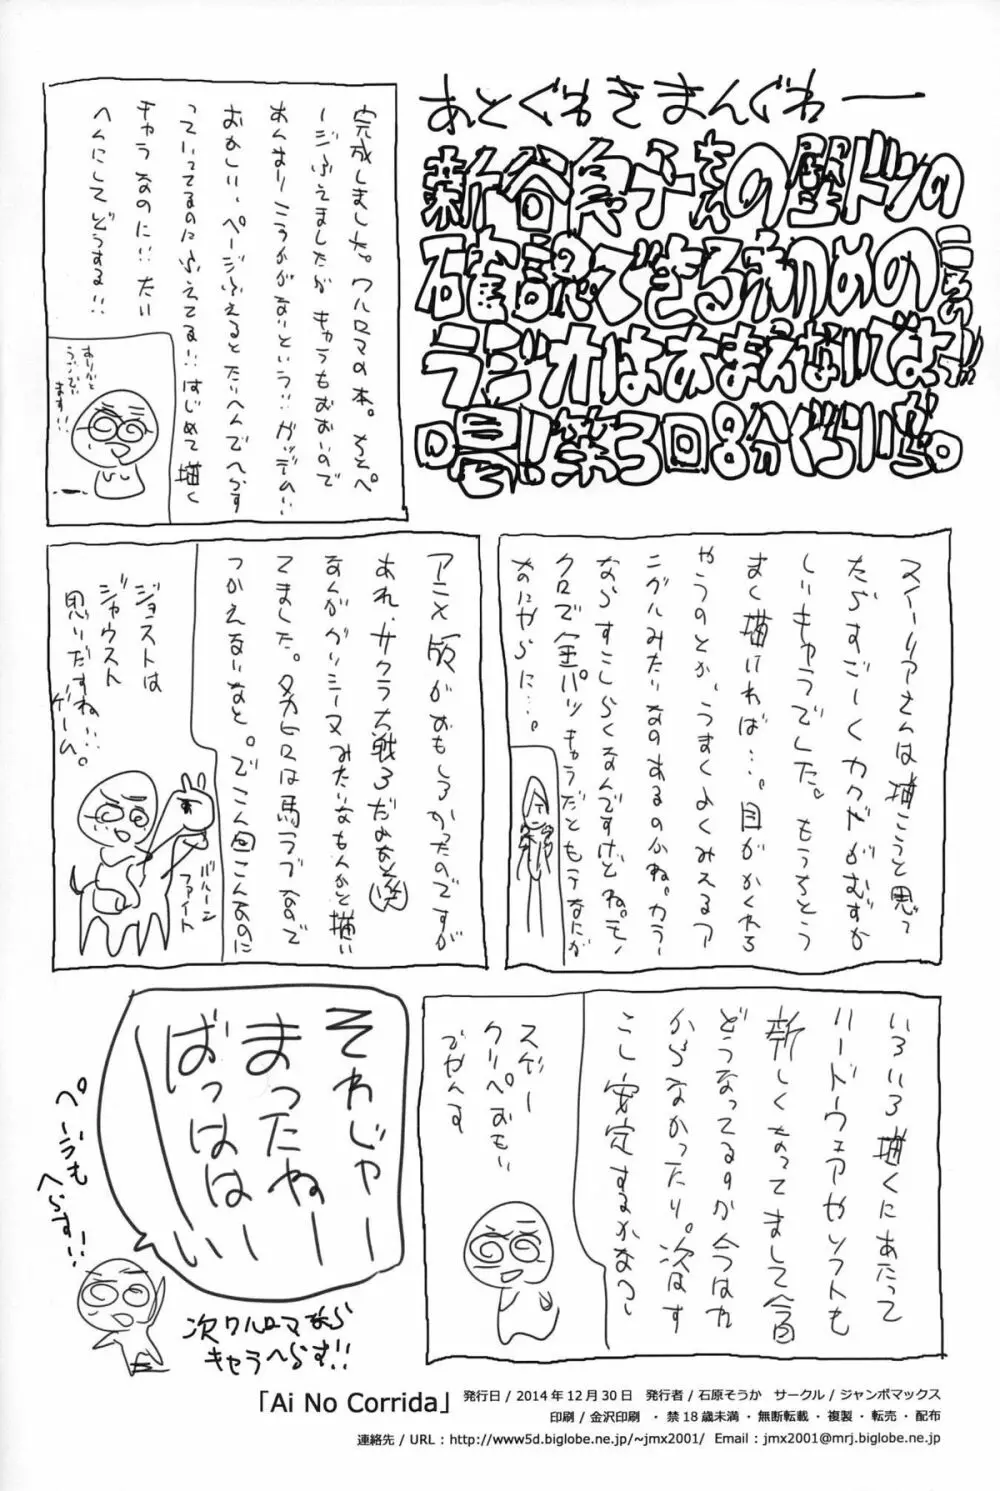 あとぐわきまんぐわー
新谷良子さんの壁ドンの
確認できる初めの
ラジオはおまえないでよっ!!
第3回8分ぐらいから。
完成しました。ワルロマの本。そしてペ
ージふえましたが キャラもおおいので
あんまりこうかがないという…ガッデム!!
おかしい、ページふえるとたいへんでへらす
っていってるのにふえてる!!はじめて描く
キャラなのに!!たい
へんにしてどうする!!
ありがと
うござい
ます!!
スイーリアさんは描こうと思っ
たらすごーくカクドがむずか
しいキャラでした。もうちとう
まく描ければ…。目がかくれる
やうのとか、うまくよくみえるア
ングルみたいなのあるのかね。カラー
ならすこしらくなんですけどね。モノ
クロで金パツキャラだともうなにが
なにやらに…。
アニメ版がおもしろかったのですが
あれ、サクラ大戦3だよな(笑)
なんかグリシーヌみたいなもんかと描い
てました。タカヒロは馬ラブなので
つかえるなと。でこん回こんなのに
ジョストは
ジャウスト
思いだすね…
ゲーム。
バルーン
ファイト
いろいろ描くにあたって
ハードウェアやソフトも
新しくなってまして今回
どうなってるすか今はわ
からなかったり。次はす
こし安定するかなっ
スゲー
クリペおもい
でやんす
それじゃー
まったねー
ばっははーい
ページも
へらす!!
次ワルロマなら
キャラへらす!!
「Ai No Corrida」 発行日 / 2014 年 12 月 30 日 発行者 / 石原そうか サークル / ジャンボマックス
印刷 / 金沢印刷 ・ 禁 18 歳未満 ・ 無断転載 ・ 複製 ・ 転売 ・ 配布
連絡先 / URL : http://www5d.biglobe.ne.jp/~jmx2001/ Email : jmx2001@mrj.biglobe.ne.jp